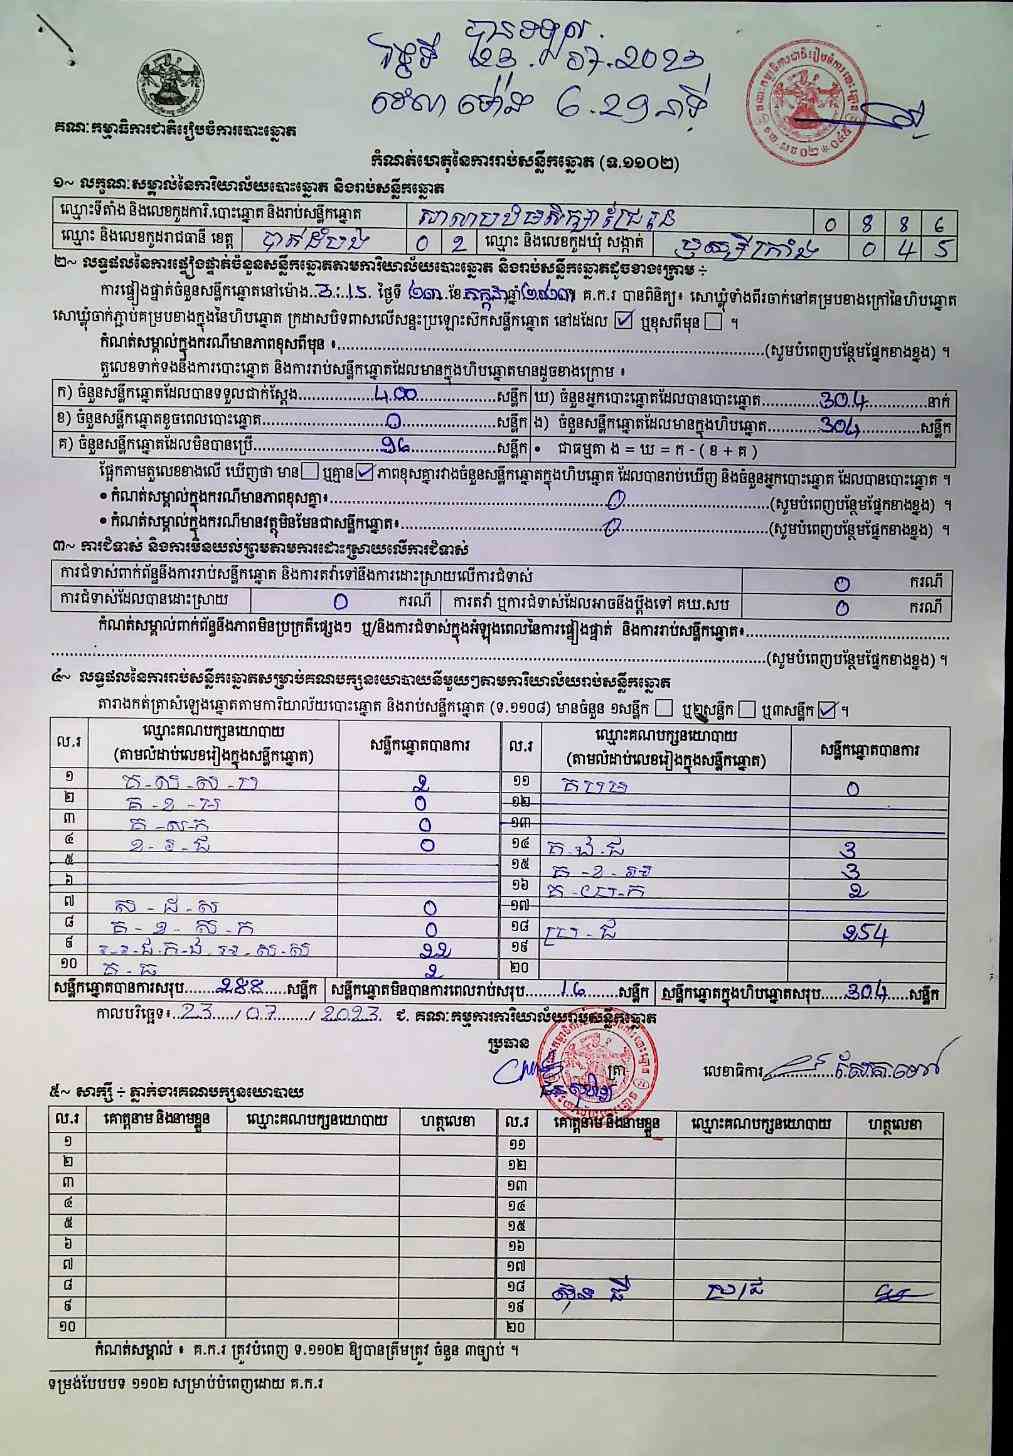 បានទទួល
ថ្ងៃទី 23.07.2023
វេលា ម៉ោង 6.29 នាទី
គណៈកម្មាធិការជាតិរៀបចំការបោះឆ្នោត
កំណត់ហេតុនៃការរាប់សន្លឹកឆ្នោត (ទ.១១០២)
១~ លក្ខណៈសម្គាល់នៃការិយាល័យបោះឆ្នោត និងរាប់សន្លឹកឆ្នោត
ឈ្មោះទីតាំង និងលេខកូដការិ.បោះឆ្នោត និងរាប់សន្លឹកឆ្នោត សាលាបឋមសិក្សា 0 8 8 6
ឈ្មោះ និងលេខកូដរាជធានី ខេត្ត បាត់ដំបង 0 2 ឈ្មោះ និងលេខកូដឃុំ សង្កាត់ ឫស្សីក្រាំង 0 4 5
២~ លទ្ធផលនៃការផ្ទៀងផ្ទាត់ចំនួនសន្លឹកឆ្នោតតាមការិយាល័យបោះឆ្នោត និងរាប់សន្លឹកឆ្នោតដូចខាងក្រោម ÷
ការផ្ទៀងផ្ទាត់ចំនួនសន្លឹកឆ្នោតនៅម៉ោង 3:15 ថ្ងៃទី ២៣ ខែ កក្កដា ឆ្នាំ ២០២៣ គ.ក.រ បានពិនិត្យ៖ សោឃ្លុំទាំងពីរចាក់នៅគម្របខាងក្រៅនៃហិបឆ្នោត
សោឃ្លុំចាក់ភ្ជាប់គម្របខាងក្នុងនៃហិបឆ្នោត ក្រដាសបិទពាសលើសន្ទះប្រឡោះស៊កសន្លឹកឆ្នោត នៅដដែល ☑ ឬខុសពីមុន ☐ ។
កំណត់សម្គាល់ក្នុងករណីមានភាពខុសពីមុន ៖..........(សូមបំពេញបន្ថែមផ្នែកខាងខ្នង) ។
តួលេខទាក់ទងនឹងការបោះឆ្នោត និងការរាប់សន្លឹកឆ្នោតដែលមានក្នុងហិបឆ្នោតមានដូចខាងក្រោម ៖
ក) ចំនួនសន្លឹកឆ្នោតដែលបានទទួលជាក់ស្តែង 400 សន្លឹក ឃ) ចំនួនអ្នកបោះឆ្នោតដែលបានបោះឆ្នោត 304 នាក់
ខ) ចំនួនសន្លឹកឆ្នោតខូចពេលបោះឆ្នោត 0 សន្លឹក ង) ចំនួនសន្លឹកឆ្នោតដែលមានក្នុងហិបឆ្នោត 304 សន្លឹក
គ) ចំនួនសន្លឹកឆ្នោតដែលមិនបានប្រើ 96 សន្លឹក • ជាធម្មតា ង = ឃ = ក - ( ខ + គ )
ផ្អែកតាមតួលេខខាងលើ ឃើញថា មាន ☐ ឬគ្មាន ☑ ភាពខុសគ្នារវាងចំនួនសន្លឹកឆ្នោតក្នុងហិបឆ្នោត ដែលបានរាប់ឃើញ និងចំនួនអ្នកបោះឆ្នោត ដែលបានបោះឆ្នោត ។
• កំណត់សម្គាល់ក្នុងករណីមានភាពខុសគ្នា៖ 0 (សូមបំពេញបន្ថែមផ្នែកខាងខ្នង) ។
• កំណត់សម្គាល់ក្នុងករណីមានវត្ថុមិនមែនជាសន្លឹកឆ្នោត៖ 0 (សូមបំពេញបន្ថែមផ្នែកខាងខ្នង) ។
៣~ ការជំទាស់ និងការមិនយល់ព្រមតាមការដោះស្រាយលើការជំទាស់
ការជំទាស់ពាក់ព័ន្ធនឹងការរាប់សន្លឹកឆ្នោត និងការតវ៉ាទៅនឹងការដោះស្រាយលើការជំទាស់ 0 ករណី
ការជំទាស់ដែលបានដោះស្រាយ 0 ករណី ការតវ៉ា ឬការជំទាស់ដែលអាចនឹងប្តឹងទៅ គឃ.សប 0 ករណី
កំណត់សម្គាល់ពាក់ព័ន្ធនឹងភាពមិនប្រក្រតីផ្សេងៗ ឬ/និងការជំទាស់ក្នុងអំឡុងពេលនៃការផ្ទៀងផ្ទាត់ និងការរាប់សន្លឹកឆ្នោត៖..........
..........(សូមបំពេញបន្ថែមផ្នែកខាងខ្នង) ។
៤~ លទ្ធផលនៃការរាប់សន្លឹកឆ្នោតសម្រាប់គណបក្សនយោបាយនីមួយៗតាមការិយាល័យរាប់សន្លឹកឆ្នោត
តារាងកត់ត្រាសំឡេងឆ្នោតតាមការិយាល័យបោះឆ្នោត និងរាប់សន្លឹកឆ្នោត (ទ.១១០៨) មានចំនួន ១សន្លឹក ☐ ឬ២សន្លឹក ☐ ឬ៣សន្លឹក ☑ ។
ល.រ ឈ្មោះគណបក្សនយោបាយ (តាមលំដាប់លេខរៀងក្នុងសន្លឹកឆ្នោត) សន្លឹកឆ្នោតបានការ ល.រ ឈ្មោះគណបក្សនយោបាយ (តាមលំដាប់លេខរៀងក្នុងសន្លឹកឆ្នោត) សន្លឹកឆ្នោតបានការ
១ 2 ១១ 0
២ 0 ១២
៣ គ-ស-ក 0 ១៣
៤ ខ-រ-ជ 0 ១៤ 3
៥ ១៥ 3
៦ ១៦ 2
៧ ស-ជ-ស 0 ១៧
៨ គ-ខ-ស-ក 0 ១៨ ប្រ-ជ 254
៩ 22 ១៩
១០ 2 ២០
សន្លឹកឆ្នោតបានការសរុប 288 សន្លឹក សន្លឹកឆ្នោតមិនបានការពេលរាប់សរុប 16 សន្លឹក សន្លឹកឆ្នោតក្នុងហិបឆ្នោតសរុប 304 សន្លឹក
កាលបរិច្ឆេទ៖ 23 / 07 / 2023 ជ. គណៈកម្មការការិយាល័យរាប់សន្លឹកឆ្នោត
ប្រធាន
ត្រា លេខាធិការ
៥~ សាក្សី ÷ ភ្នាក់ងារគណបក្សនយោបាយ
ល.រ គោត្តនាម និងនាមខ្លួន ឈ្មោះគណបក្សនយោបាយ ហត្ថលេខា ល.រ គោត្តនាម និងនាមខ្លួន ឈ្មោះគណបក្សនយោបាយ ហត្ថលេខា
១ ១១
២ ១២
៣ ១៣
៤ ១៤
៥ ១៥
៦ ១៦
៧ ១៧
៨ ១៨ ប្រ/ជ
៩ ១៩
១០ ២០
កំណត់សម្គាល់ ៖ គ.ក.រ ត្រូវបំពេញ ទ.១១០២ ឱ្យបានត្រឹមត្រូវ ចំនួន ៣ច្បាប់ ។
ទម្រង់បែបបទ ១១០២ សម្រាប់បំពេញដោយ គ.ក.រ